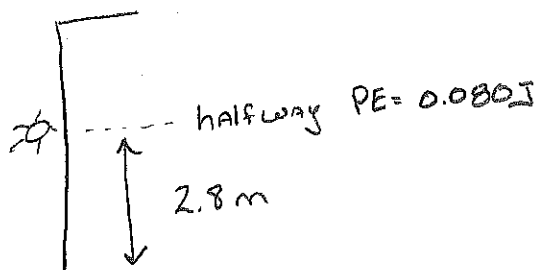 halfway PE= 0.080J
2.8 m